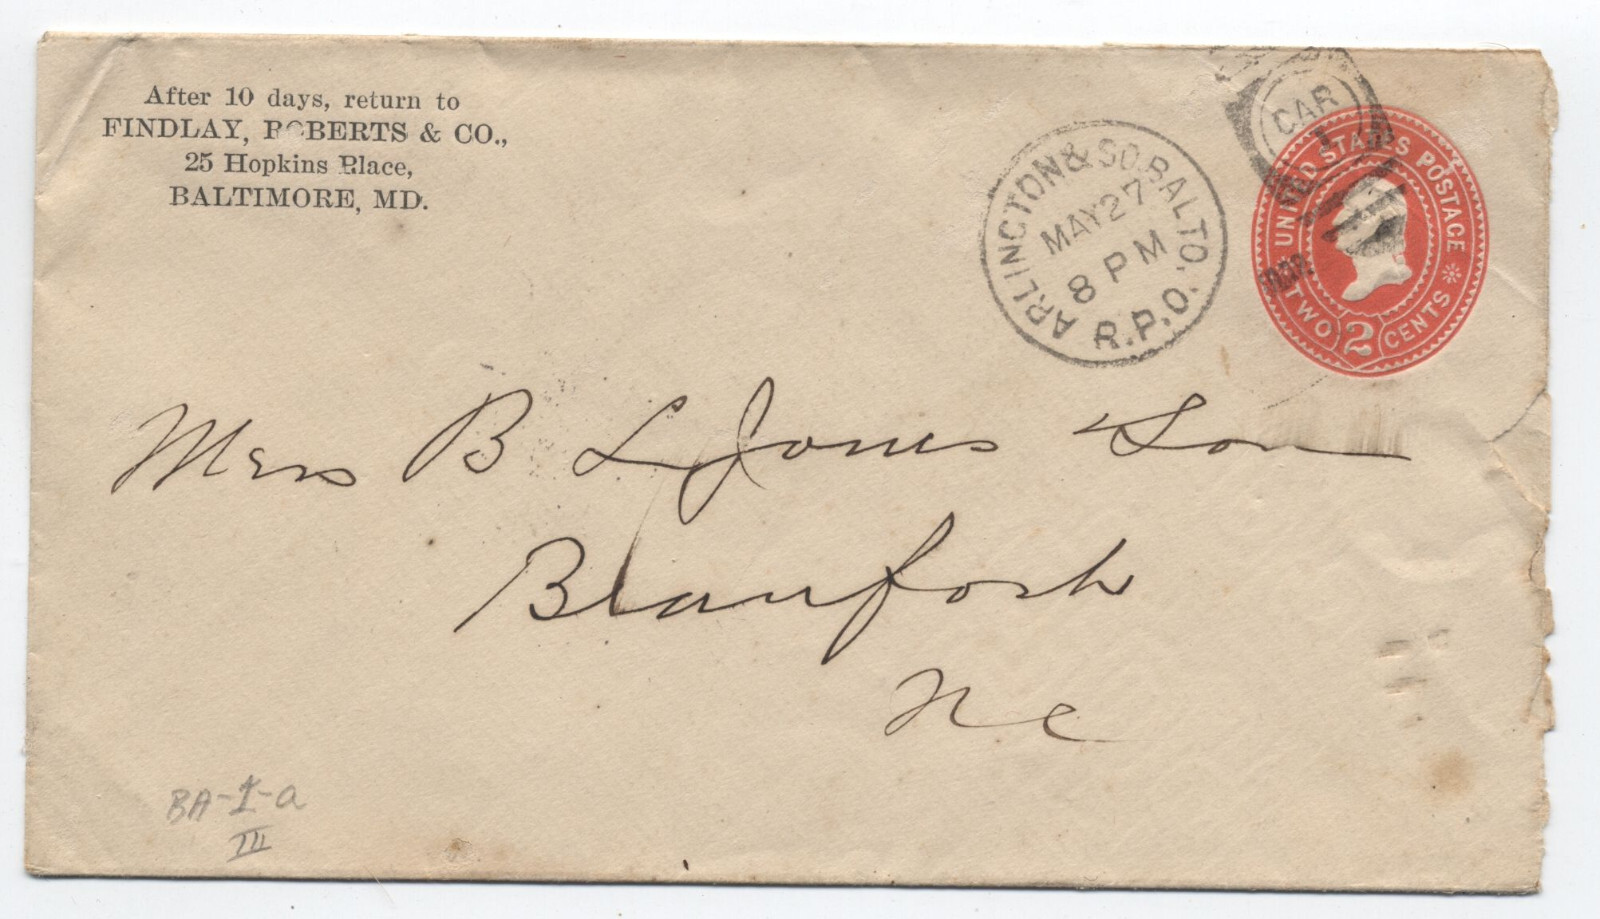 After 10 days, return to
FINDLAY, ROBERTS & CO.,
25 Hopkins Place,
BALTIMORE, MD.
ARLINGTON & SO. BALTO.
MAY 27
8 PM
R.P.O.
CAR
1
UNITED STATES POSTAGE
TWO 2 CENTS
Mess B L Jones & Son
Beaufort
N C
BA-1-a
III